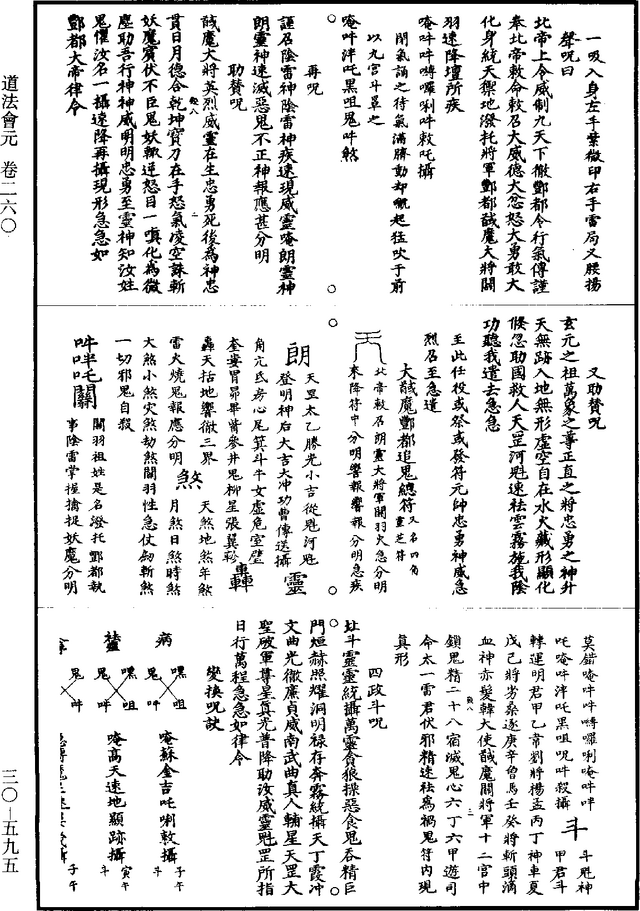 道法會元 卷二六〇
三〇—五九五
一吸入身左手紫微印右手雷局叉腰揚
聲呪曰
北帝上令威制九天下徹酆都令行氣傳謹
奉北帝敕命敕召大威德大忿怒大勇敢大
化身統天禦地潑托將軍酆都馘魔大將關
羽速降壇所疾
唵吽吽㗘囉唎吽敕吒攝
閉氣誦之待氣滿臍動却噘起猛吹于前
以九宮斗罩之
唵吽泮吒黑咀鬼吽
再呪
謹召陰雷神陰雷神疾速現威靈唵朗靈神
朗靈神速滅惡鬼不正神報應甚分明
助贊呪
馘魔大將英烈威靈在生忠勇死後為神忠
貫日月德合乾坤寶刀在手怒氣凌空誅斬
妖魔賓伏不臣鬼妖輒逆怒目一嗔化為微
塵助吾行神神威明明忠勇至靈神知汝姓
鬼懼汝名一攝速降再攝現形急急如
酆都大帝律令
又助贊呪
玄元之祖萬象之尊正直之將忠勇之神升
天無跡入地無形虛空自在水火藏形顯化
倏忽助國救人天罡河魁速袪雲霧施我陰
功聽我遣去急急
至此任役或祭或發符元帥忠勇神威急
烈召至急遣
大馘魔酆都追鬼總符又名四角靈芝符
北帝敕召朗靈大將軍關羽火急分明
來降符中分明響報響報分明急疾
朗
天罡太乙勝光小吉從魁河魁
登明神后大吉大沖功曹傳送攝
靈
角亢氐房心尾箕斗牛女虛危室壁
奎婁胃昴畢觜參井鬼柳星張翼軫
轟
轟天括地響徹三界
雷火燒鬼報應分明
煞
天煞地煞年煞
月煞日煞時煞
大煞小煞灾煞劫煞關羽性急仗劒斬煞
一切邪鬼自殺
吽吽吒關
關羽祖姓是名潑托酆都執
事陰雷掌握擒捉妖魔分明
莫錯唵吽吽㗘囉唎唵吽吽
吒唵吽泮吒黑咀呪吽殺攝
斗
斗魁神
甲君斗
轉運明君甲乙常劉將揚孟丙丁神車夏
戊己將劣桑逐庚辛曾馬壬癸將斬頭滴
血神赤髮韓大使馘魔關將軍十二宮中
鎖鬼精二十八宿滅鬼心六丁六甲遊司
命太一雷君伏邪精速袪為禍鬼符內現
真形
四政斗呪
北斗靈靈統攝萬靈貪狼操惡食鬼吞精巨
門烜赫照耀洞明祿存奔霧統攝天丁霞沖
文曲光徹廉貞威南武曲真人輔星天罡大
聖破軍尊星真光普降助汝威靈魁罡所指
日行萬程急急如律令
變換呪訣
病
嘿 咀
鬼 吽
唵蘇金吉吒唎敕攝 子午 斗
嘿 咀
鬼 吽
唵高天速地顯跡攝 寅午 斗
鬼 吽
子午